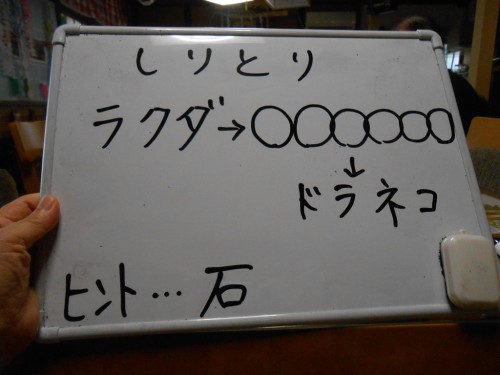 しりとり
ラクダ→○○○○○○
↓
ドラネコ
ヒント…石